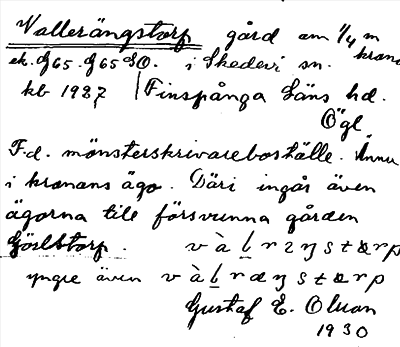 Vallerängstorp gård om 1/4 m
ek. J65. J65 SO. i Skedevi sn. krono
kb 1927 | Finspånga Läns hd.
Ögl.
F.d. mönsterskrivareboställe. Ännu
i kronans ägo. Däri ingår även
ägorna till försvunna gården
torp. v à l r z ŋ s t ɒ r p
yngre även v à l r æ ŋ s t ɒ r p
Gustaf E. Olson
1930